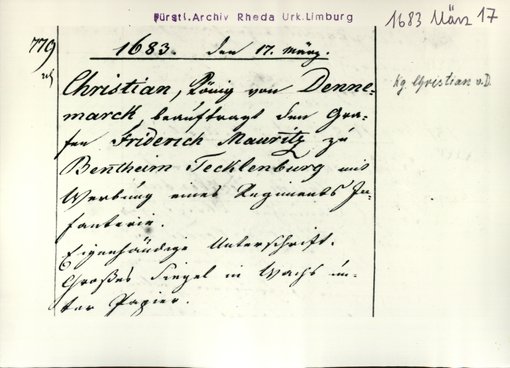 Fürstl. Archiv Rheda Urk. Limburg
1683 März 17
779
1683. den 17. März.
Christian, König von Denne-
marck, beauftragt den Gra-
fen Friderich Mauritz zu
Bentheim Tecklenburg mit
Werbung eines Regiments In-
fanterie.
Eigenhändige Unterschrift.
Großes Siegel in Wachs un-
ter Papier.
Kg Christian v. D.